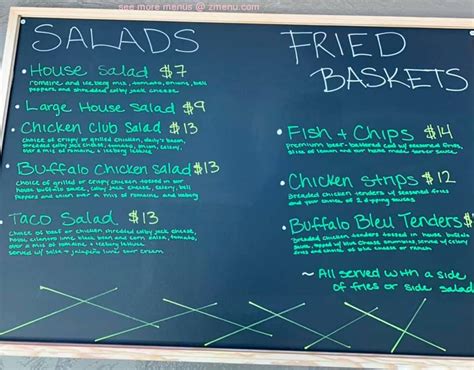 see more menus @ zmenu.com
SALADS
• House Salad $7
romaine and iceberg mix, tomato, onions, bell
peppers and shredded colby jack cheese
• Large House Salad $9
• Chicken Club Salad $13
choice of crispy or grilled chicken, daily's bacon,
shredded colby jack cheese, tomato, onion, celery,
over a mix of romaine & iceberg lettuce
• Buffalo Chicken Salad $13
choice of grilled or crispy chicken tossed in our
house buffalo sauce, colby jack cheese, celery, bell
peppers and onion over a mix of romaine, and iceberg
• Taco Salad $13
choice of beef or chicken shredded colby jack cheese,
house cilantro lime black bean and corn salsa, tomato,
over a mix of romaine & iceberg lettuce
served w/ salsa + jalapeño lime sour cream
FRIED
BASKETS
• Fish + Chips $14
premium beer-battered cod w/ seasoned fries,
slice of lemon and our house made tartar sauce
• Chicken Strips $12
Breaded chicken tenders w/ seasoned fries
and your choice of 2 dipping sauces
• Buffalo Bleu Tenders $
breaded chicken tenders tossed in house buffalo
sauce, topped w/ bleu cheese crumbles, served w/
fries and choice of bleu cheese or ranch
~ All served with a side
of fries or side salad